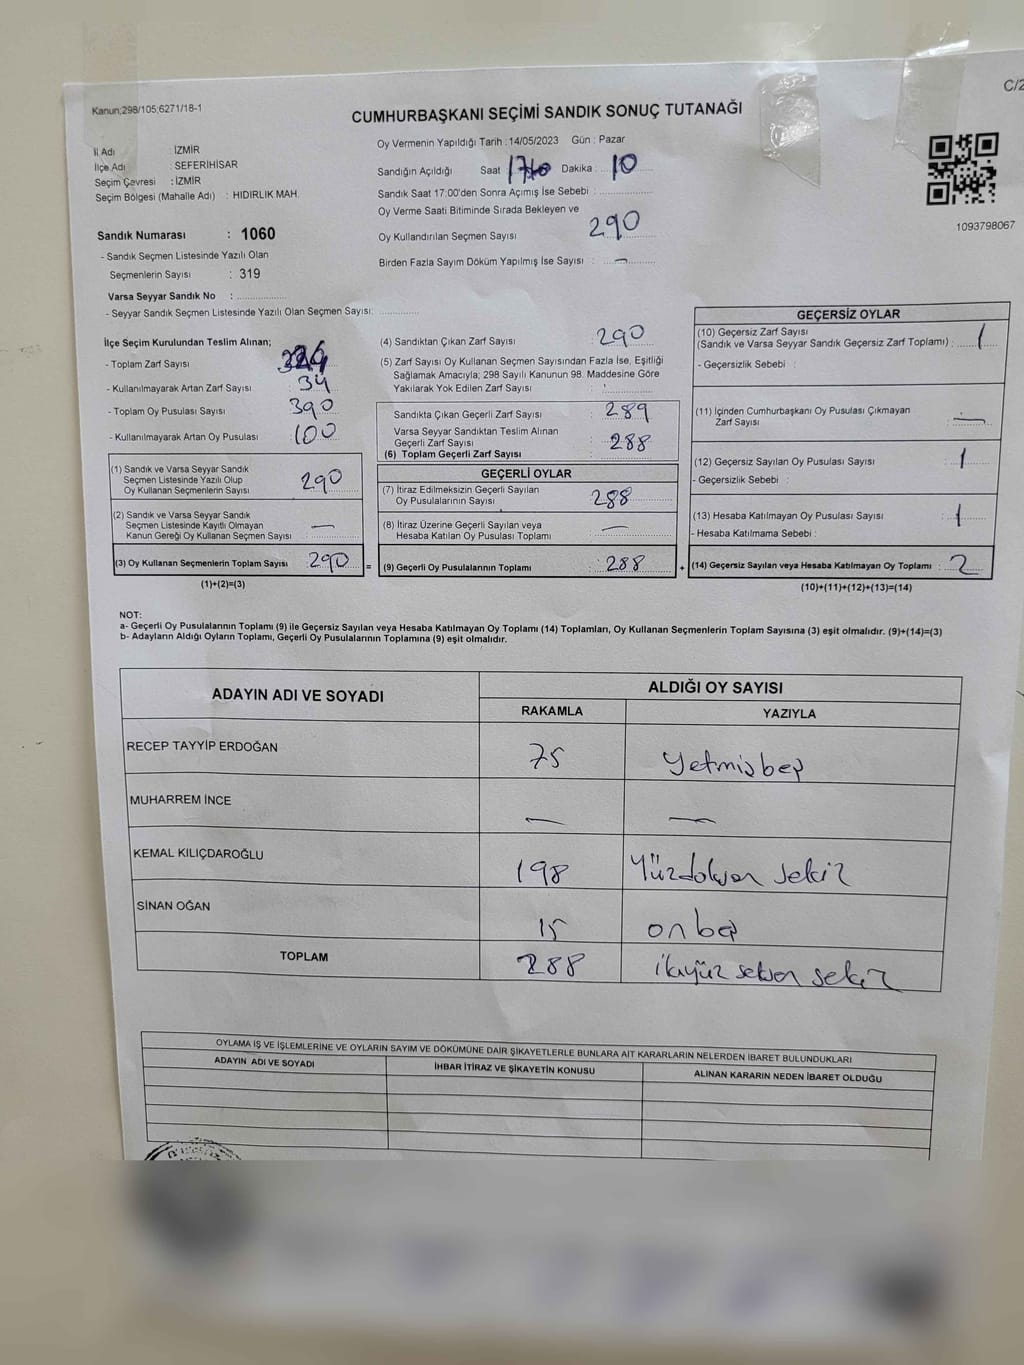 Kanun;298/105;6271/18-1
C/2
CUMHURBAŞKANI SEÇİMİ SANDIK SONUÇ TUTANAĞI
İl Adı : İZMİR
İlçe Adı : SEFERİHİSAR
Seçim Çevresi : İZMİR
Seçim Bölgesi (Mahalle Adı) : HIDIRLIK MAH.
Sandık Numarası : 1060
- Sandık Seçmen Listesinde Yazılı Olan
Seçmenlerin Sayısı : 319
Varsa Seyyar Sandık No : ................
- Seyyar Sandık Seçmen Listesinde Yazılı Olan Seçmen Sayısı: ............
Oy Vermenin Yapıldığı Tarih : 14/05/2023 Gün : Pazar
Sandığın Açıldığı Saat Dakika : 10
Sandık Saat 17:00'den Sonra Açımış İse Sebebi : ................
Oy Verme Saati Bitiminde Sırada Bekleyen ve
Oy Kullandırılan Seçmen Sayısı 290
Birden Fazla Sayım Döküm Yapılmış İse Sayısı : —
1093798067
İlçe Seçim Kurulundan Teslim Alınan;
- Toplam Zarf Sayısı :
- Kullanılmayarak Artan Zarf Sayısı : 34
- Toplam Oy Pusulası Sayısı : 390
- Kullanılmayarak Artan Oy Pusulası : 100
(1) Sandık ve Varsa Seyyar Sandık
Seçmen Listesinde Yazılı Olup
Oy Kullanan Seçmenlerin Sayısı : 290
(2) Sandık ve Varsa Seyyar Sandık
Seçmen Listesinde Kayıtlı Olmayan
Kanun Gereği Oy Kullanan Seçmen Sayısı : —
(3) Oy Kullanan Seçmenlerin Toplam Sayısı : 290
(1)+(2)=(3)
=
(4) Sandıktan Çıkan Zarf Sayısı : 290
(5) Zarf Sayısı Oy Kullanan Seçmen Sayısından Fazla İse, Eşitliği
Sağlamak Amacıyla; 298 Sayılı Kanunun 98. Maddesine Göre
Yakılarak Yok Edilen Zarf Sayısı :
Sandıkta Çıkan Geçerli Zarf Sayısı : 289
Varsa Seyyar Sandıktan Teslim Alınan
Geçerli Zarf Sayısı : 288
(6) Toplam Geçerli Zarf Sayısı :
GEÇERLİ OYLAR
(7) İtiraz Edilmeksizin Geçerli Sayılan
Oy Pusulalarının Sayısı : 288
(8) İtiraz Üzerine Geçerli Sayılan veya
Hesaba Katılan Oy Pusulası Toplamı : —
(9) Geçerli Oy Pusulalarının Toplamı : 288
+
GEÇERSİZ OYLAR
(10) Geçersiz Zarf Sayısı
(Sandık ve Varsa Seyyar Sandık Geçersiz Zarf Toplamı) : 1
- Geçersizlik Sebebi :
(11) İçinden Cumhurbaşkanı Oy Pusulası Çıkmayan
Zarf Sayısı : —
(12) Geçersiz Sayılan Oy Pusulası Sayısı : 1
- Geçersizlik Sebebi :
(13) Hesaba Katılmayan Oy Pusulası Sayısı : 1
- Hesaba Katılmama Sebebi :
(14) Geçersiz Sayılan veya Hesaba Katılmayan Oy Toplamı : 2
(10)+(11)+(12)+(13)=(14)
NOT:
a- Geçerli Oy Pusulalarının Toplamı (9) ile Geçersiz Sayılan veya Hesaba Katılmayan Oy Toplamı (14) Toplamları, Oy Kullanan Seçmenlerin Toplam Sayısına (3) eşit olmalıdır. (9)+(14)=(3)
b- Adayların Aldığı Oyların Toplamı, Geçerli Oy Pusulalarının Toplamına (9) eşit olmalıdır.
ADAYIN ADI VE SOYADI ALDIĞI OY SAYISI
RAKAMLA YAZIYLA
RECEP TAYYİP ERDOĞAN 75 Yetmişbeş
MUHARREM İNCE — —
KEMAL KILIÇDAROĞLU 198 Yüzdoksan sekiz
SİNAN OĞAN 15 onbeş
TOPLAM 288 ikiyüz seksen sekiz
OYLAMA İŞ VE İŞLEMLERİNE VE OYLARIN SAYIM VE DÖKÜMÜNE DAİR ŞİKAYETLERLE BUNLARA AİT KARARLARIN NELERDEN İBARET BULUNDUKLARI
ADAYIN ADI VE SOYADI İHBAR İTİRAZ VE ŞİKAYETİN KONUSU ALINAN KARARIN NEDEN İBARET OLDUĞU